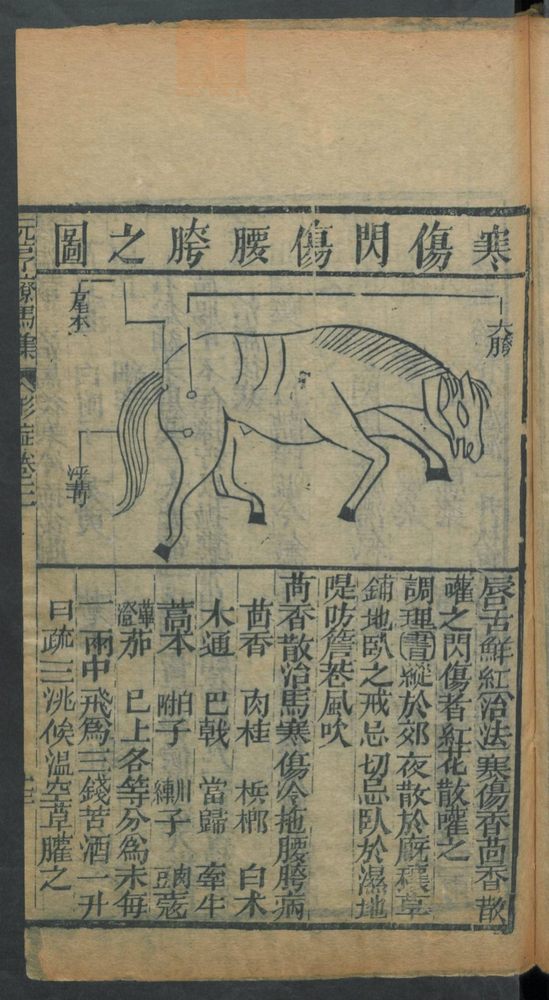 寒傷閃傷腰胯之圖
大胯
尾本
汗溝
元亨療馬集
卷二
唇舌鮮紅治法寒傷香茴香散
嚾之閃傷者紅花散嚾之
調理晝縱於郊夜散於廐穰草
鋪地臥之戒忌切忌臥於濕地
隄防簷巷風吹
茴香散治馬寒傷冷拖腰胯病
茴香 肉桂 梹榔 白朮
木通 巴戟 當歸 牽牛
藁本 附子 川練子 肉豆蔻
蓽澄茄 已上各等分爲末每
一兩中飛爲三錢苦酒一升
曰疏三洮候溫空草嚾之